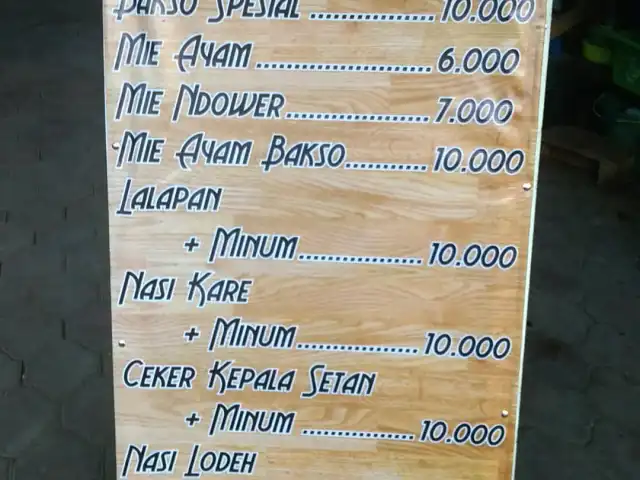 Bakso Spesial ..................... 10.000
Mie Ayam ............................. 6.000
Mie Ndower ....................... 7.000
Mie Ayam Bakso ............. 10.000
Lalapan
+ Minum .................... 10.000
Nasi Kare
+ Minum .................... 10.000
Ceker Kepala Setan
+ Minum .................. 10.000
Nasi Lodeh